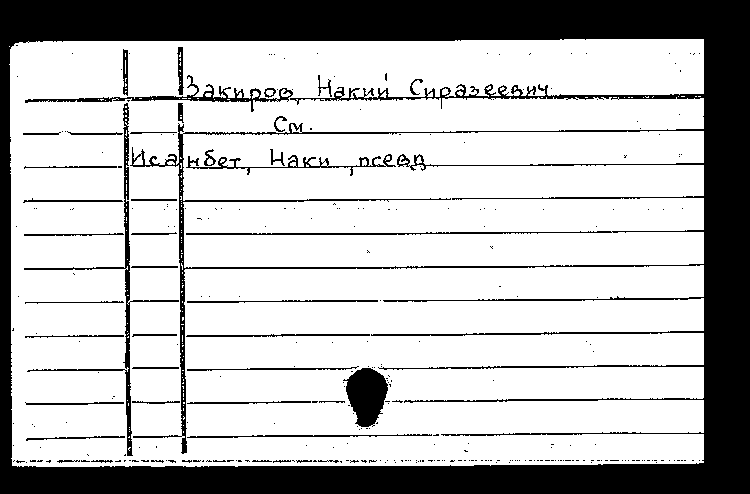 Закиров, Накий Сиразеевич
См.
Исанбет, Наки, псевд